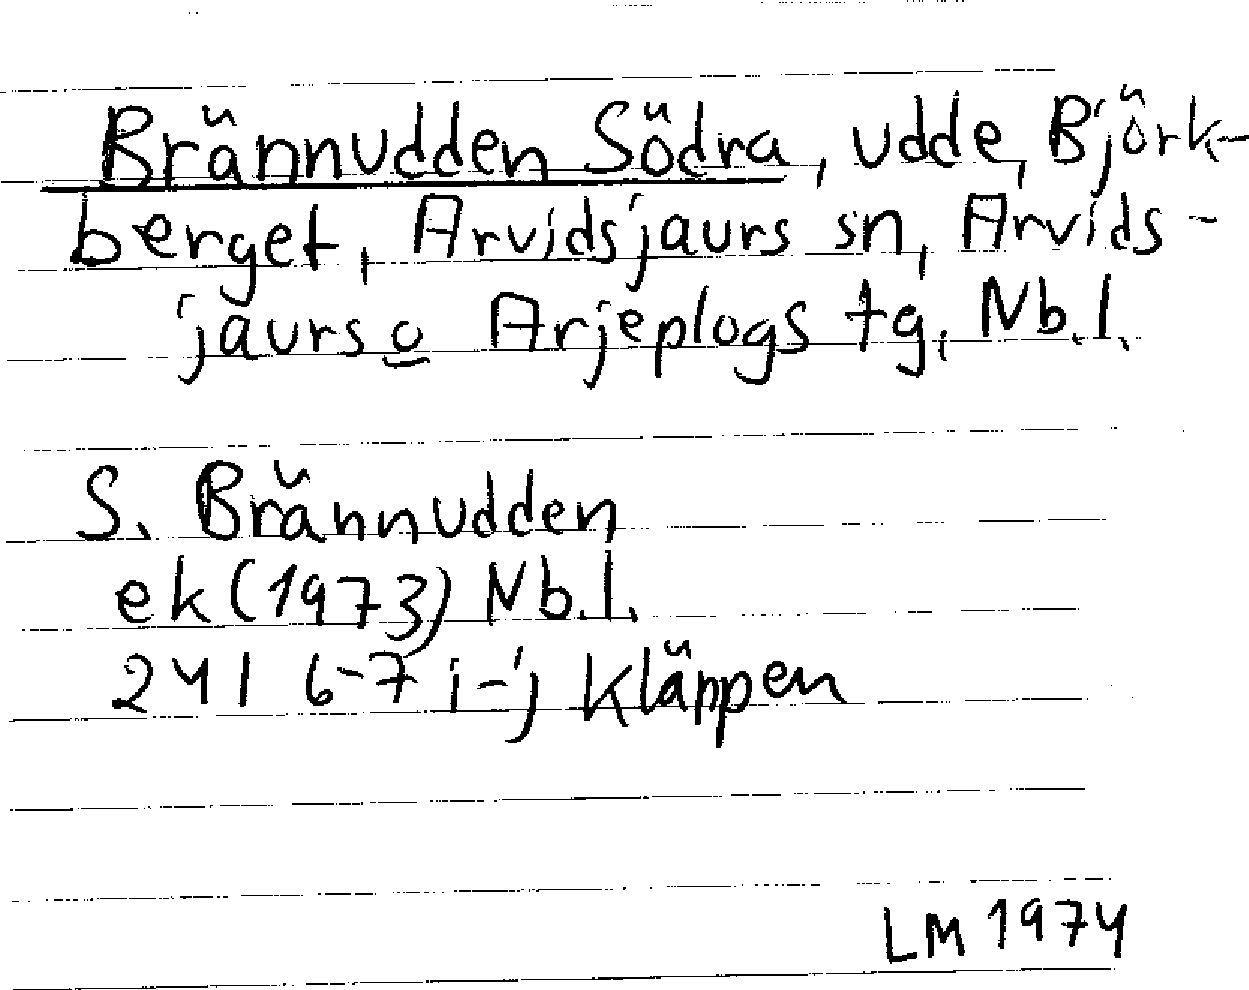 Brännudden Södra, udde, Björk-
berget, Arvidsjaurs sn, Arvids-
jaurs o Arjeplogs tg, Nb.l.
S. Brännudden
ek (1973) Nb.l.
24I 6-7 i-j Kläppen
LM 1974